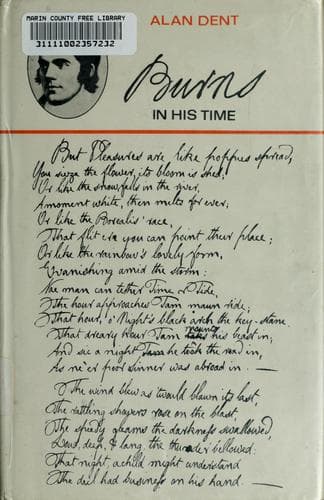 MARIN COUNTY FREE LIBRARY
31111002357232
ALAN DENT
Burns
IN HIS TIME
But Pleasures are like poppies spread,
You seize the flower, its bloom is shed;
Or like the snow falls in the river,
A moment white, then melts for ever;
Or like the Borealis' race,
That flit ere you can point their place;
Or like the rainbow's lovely form,
Evanishing amid the storm:
Nae man can tether Time or Tide,
The hour approaches Tam maun ride;
That hour, o' Night's black arch the key-stane
That dreary hour Tam mounts his beast in;
And sic a night he took the road in,
As ne'er poor sinner was abroad in. —
The wind blew as 'twould blawn its last,
The rattling showers rose on the blast,
The speedy gleams the darkness swallowed,
Loud, deep, & lang, the thunder bellowed:
That night, a child might understand
The deil had business on his hand. —